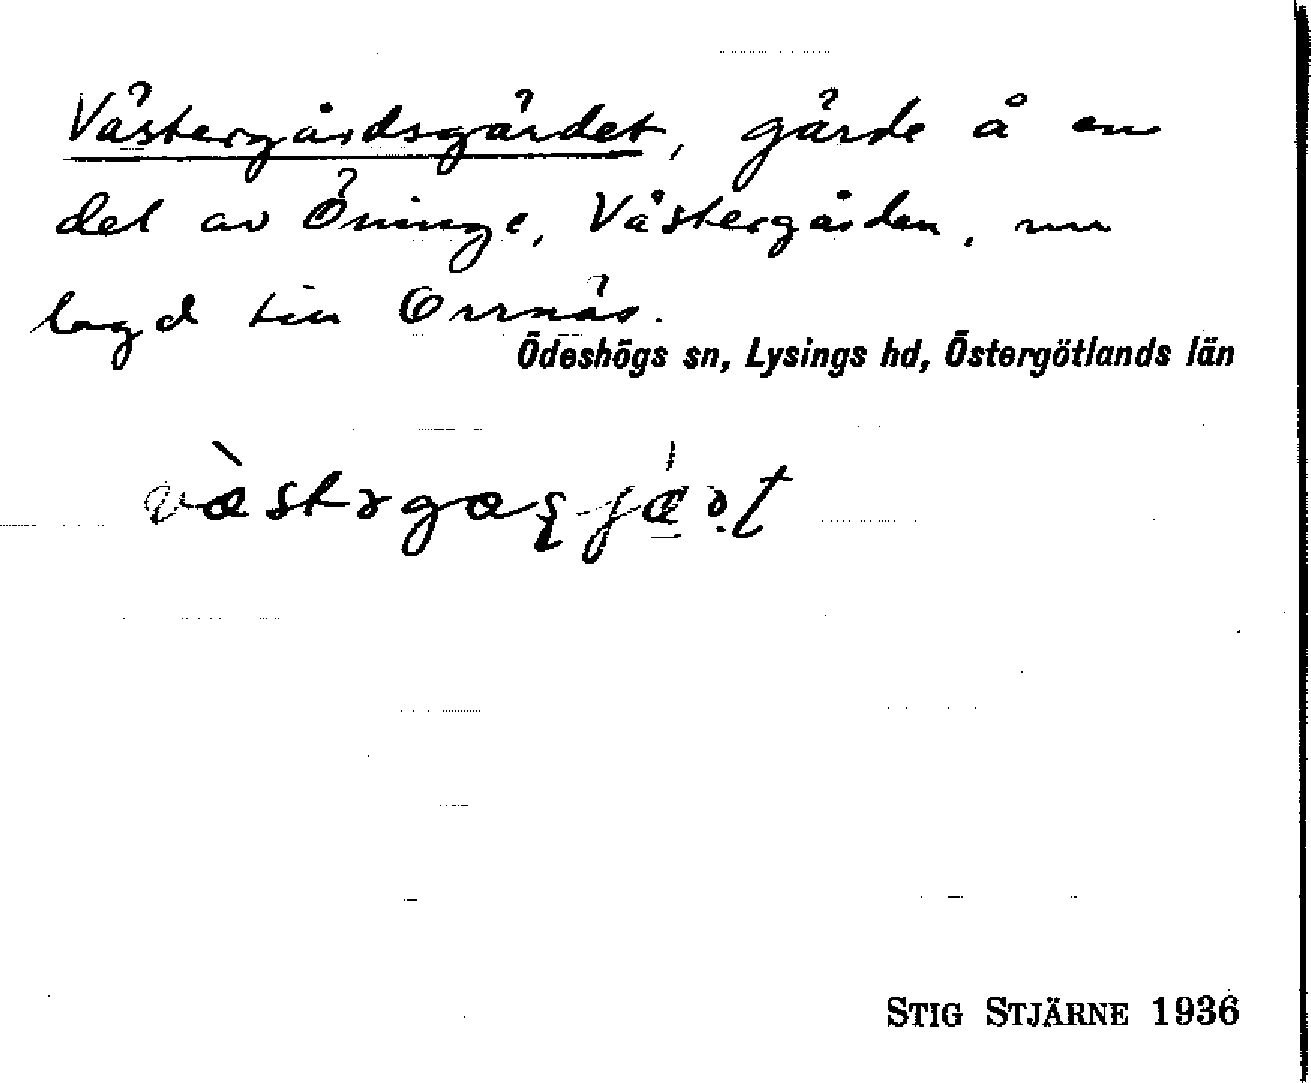 Västergårdsgärdet, gärde å en
del av Öninge, Västergården, nu
lagd till Orrnäs.
Ödeshögs sn, Lysings hd, Östergötlands län
STIG STJÄRNE 1936